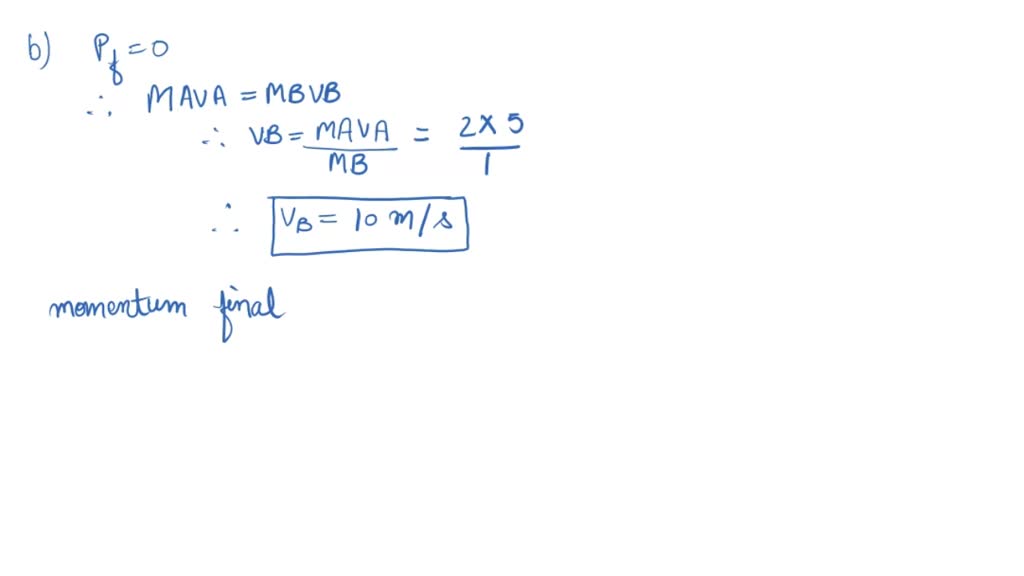 b) Pf = 0
∴ MAVA = MBVB
∴ VB = MAVA / MB = 2 × 5 / 1
∴ VB = 10 m/s
momentum final